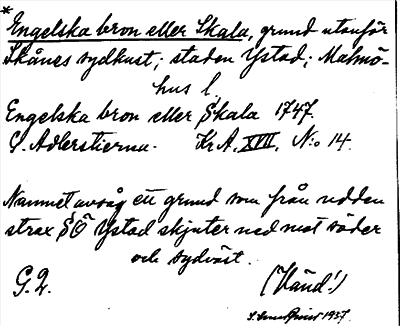 * Engelska bron eller Skala, grund utanför
Skånes sydkust; staden Ystad; Malmö-
hus l.
Engelska bron eller Skala 1747.
C. Adlerstierna. Kr. A. XVII, N:o 14.
Namnet avsåg ett grund som från redden
strax SÖ Ystad skjuter ned mot söder
och sydväst.
G. 2. (Vänd!)
1937.